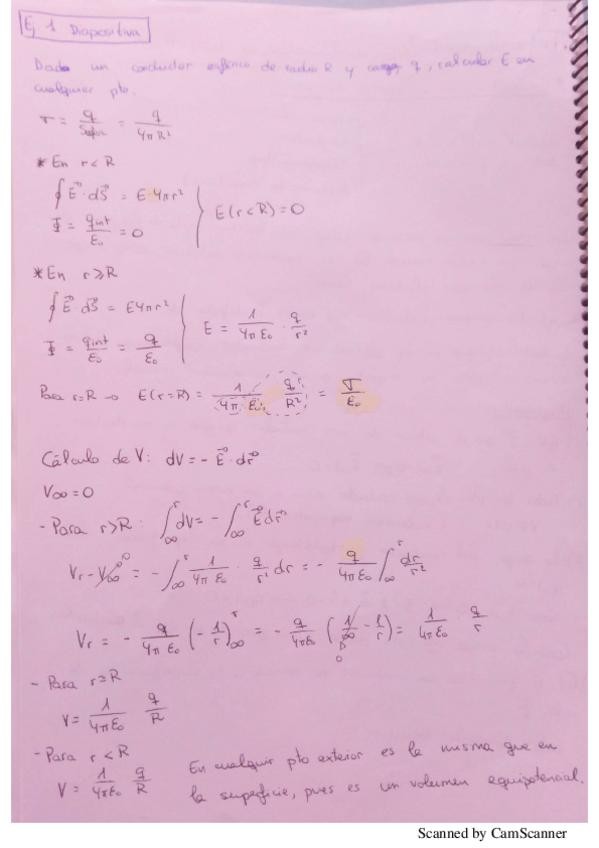 Ej 1 Diapositiva
Dado un conductor esférico de radio R y carga q, calcular E en
cualquier pto.
σ = q/Superf = q/4πR²
* En r < R
∮E⃗·dS⃗ = E·4πr²
Φ = qint/ε₀ = 0
E(r<R) = 0
* En r ≥ R
∮E⃗ dS⃗ = E4πr²
Φ = qint/ε₀ = q/ε₀
E = 1/4πε₀ · q/r²
Para r=R → E(r=R) = 1/4πε₀ q/R² = σ/ε₀
Cálculo de V: dV = - E⃗·dr⃗
V∞ = 0
- Para r>R: ∫∞^r dV = - ∫∞^r E⃗dr⃗
Vr - V∞ 0 = - ∫∞^r 1/4πε₀ · q/r² dr = - q/4πε₀ ∫∞^r dr/r²
Vr = - q/4πε₀ (-1/r)∞^r = - q/4πε₀ (1/∞ - 1/r) = 1/4πε₀ q/r
0
- Para r=R
V = 1/4πε₀ q/R
- Para r < R
V = 1/4πε₀ q/R
En cualquir pto exterior es la misma que en
la superficie, pues es un volumen equipotencial.
Scanned by CamScanner